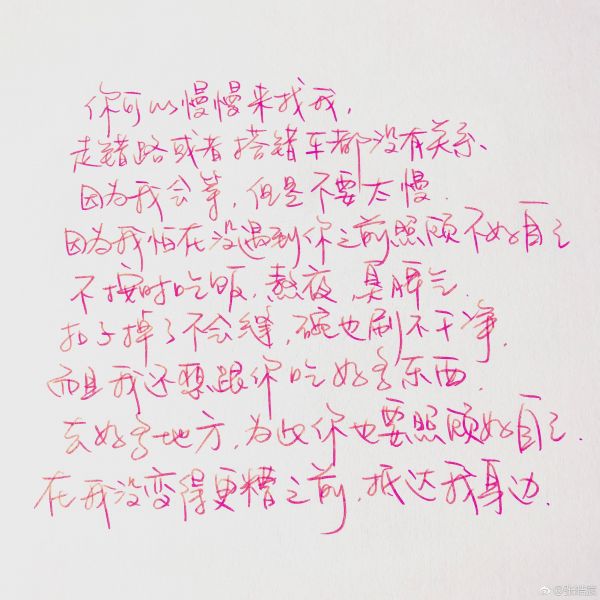 你可以慢慢来找我,
走错路或者搭错车都没有关系、
因为我会等,但是不要太慢.
因为我怕在没遇到你之前照顾不好自己
不按时吃饭.熬夜.臭脾气.
扣子掉了不会缝,碗也刷不干净.
而且我还想跟你吃好多东西.
去好多地方,为此你也要照顾好自己.
在我没变得更糟之前.抵达我身边.
@张皓宸